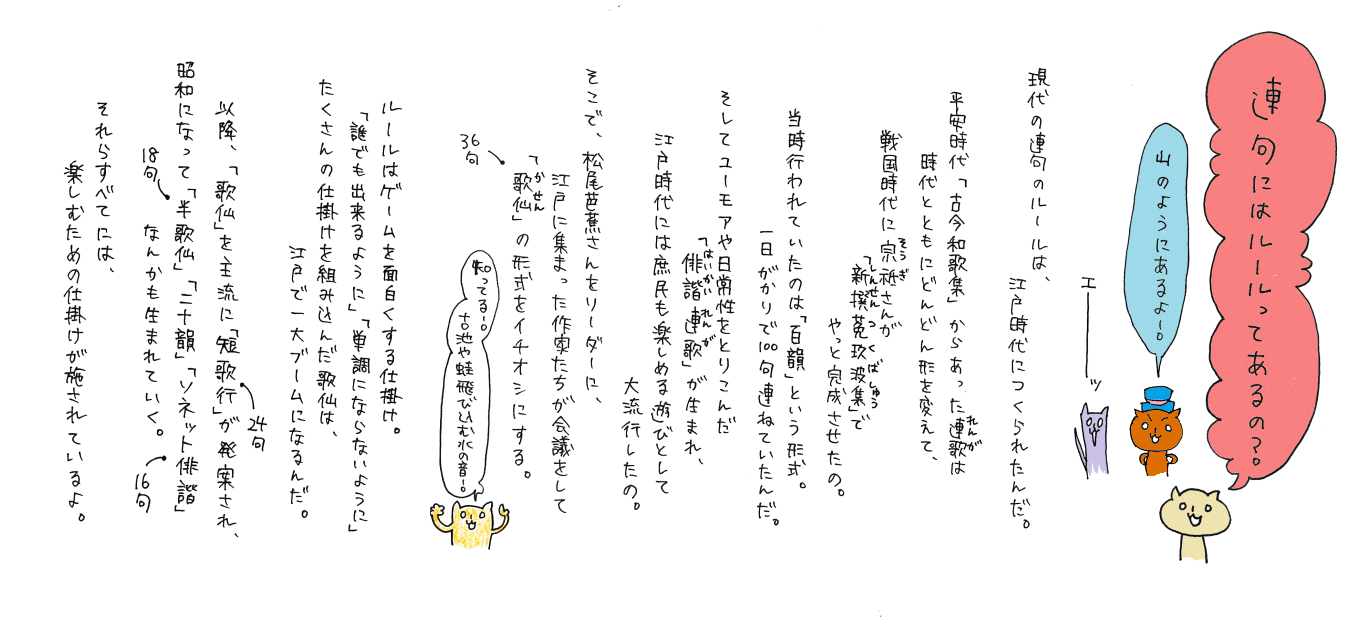 連句にはルールってあるの?
山のようにあるよー。
エーーッ
現代の連句のルールは、
江戸時代につくられたんだ。
平安時代「古今和歌集」からあった連歌は
れんが
時代とともにどんどん形を変えて、
戦国時代に宗祇さんが
そうぎ
「新撰菟玖波集」で
しんせんつくばしゅう
やっと完成させたの。
当時行われていたのは「百韻」という形式。
一日がかりで100句連ねていたんだ。
そしてユーモアや日常性をとりこんだ
「俳諧連歌」が生まれ、
はいかいれんが
江戸時代には庶民も楽しめる遊びとして
大流行したの。
そこで、松尾芭蕉さんをリーダーに、
江戸に集まった作家たちが会議をして
「歌仙」の形式をイチオシにする。
かせん
36句
知ってるー。
古池や蛙飛び込む水の音ー。
ルールはゲームを面白くする仕掛け。
「誰でも出来るように」「単調にならないように」
たくさんの仕掛けを組み込んだ歌仙は、
江戸で一大ブームになるんだ。
以降、「歌仙」を主流に「短歌行」が発案され、
24句
昭和になって「半歌仙」「二十韻」「ソネット俳諧」
18句
16句
なんかも生まれていく。
それらすべてには、
楽しむための仕掛けが施されているよ。